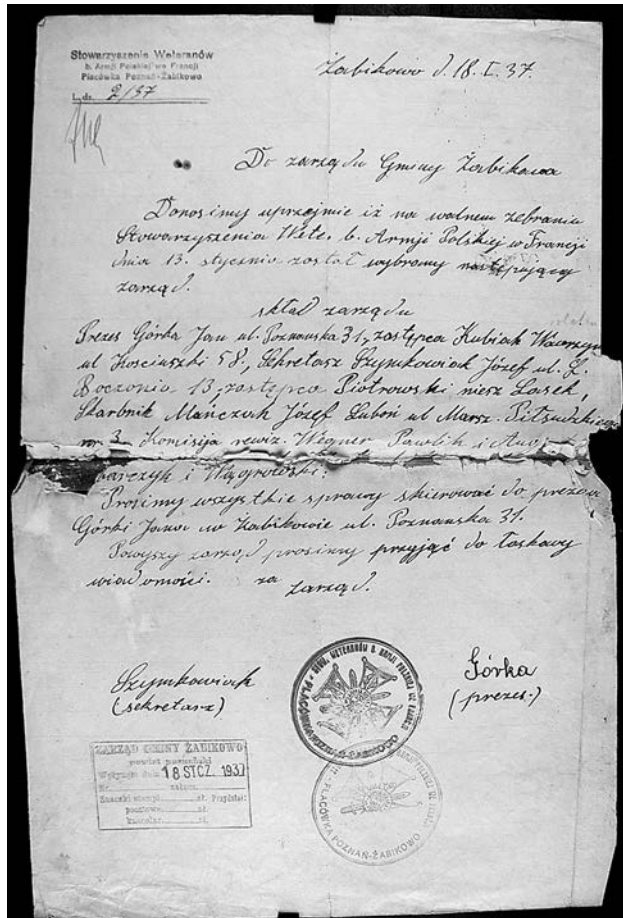 Stowarzyszenie Weteranów
b. Armji Polskiej we Francji
Placówka Poznań-Żabikowo
L. dz. 2/37
Żabikowo d. 18. I. 37.
Do zarządu Gminy Żabikowa
Donosimy uprzejmie iż na walnem zebraniu
Stowarzyszenia Wete. b. Armji Polskiej w Francji
dnia 13. stycznia został wybrany następujący
zarząd.
skład zarządu
Prezes Górka Jan ul. Poznanska 31, zastępca Kubiak Wawrzyn
ul Kosciuszki 58., Sekretasz Szymkowiak Józef ul.
13, zastępca Piotrowski Lasek,
Skarbnik Mańczak Józef Luboń ul Marsz. Piłsudzkiego
nr 3. Komisija rewiz. Wegner Pawlik i
i Wągrowski.
Prosimy wszystkie sprawy skierować do prezesa
Górki Jana w Żabikowie ul. Poznanska 31.
Powyszy zarząd prosimy przyjąć do łaskawy
wiadomości. za zarząd.
Szymkowiak
(sekretarz)
Górka
(prezes.)
STOW. WETERANÓW B. ARMJI POLSKIEJ WE FRANCJI
PLACÓWKA POZNAŃ-ŻABIKOWO
ZARZĄD GMINY ŻABIKOWO
powiat poznański
Wpłynęło dnia 18 STCZ. 1937
Nr. załącz.
Znaczki stempl. zł. Przydział:
pocztowe zł.
kancelar. zł.
PLACÓWKA POZNAŃ-ŻABIKOWO